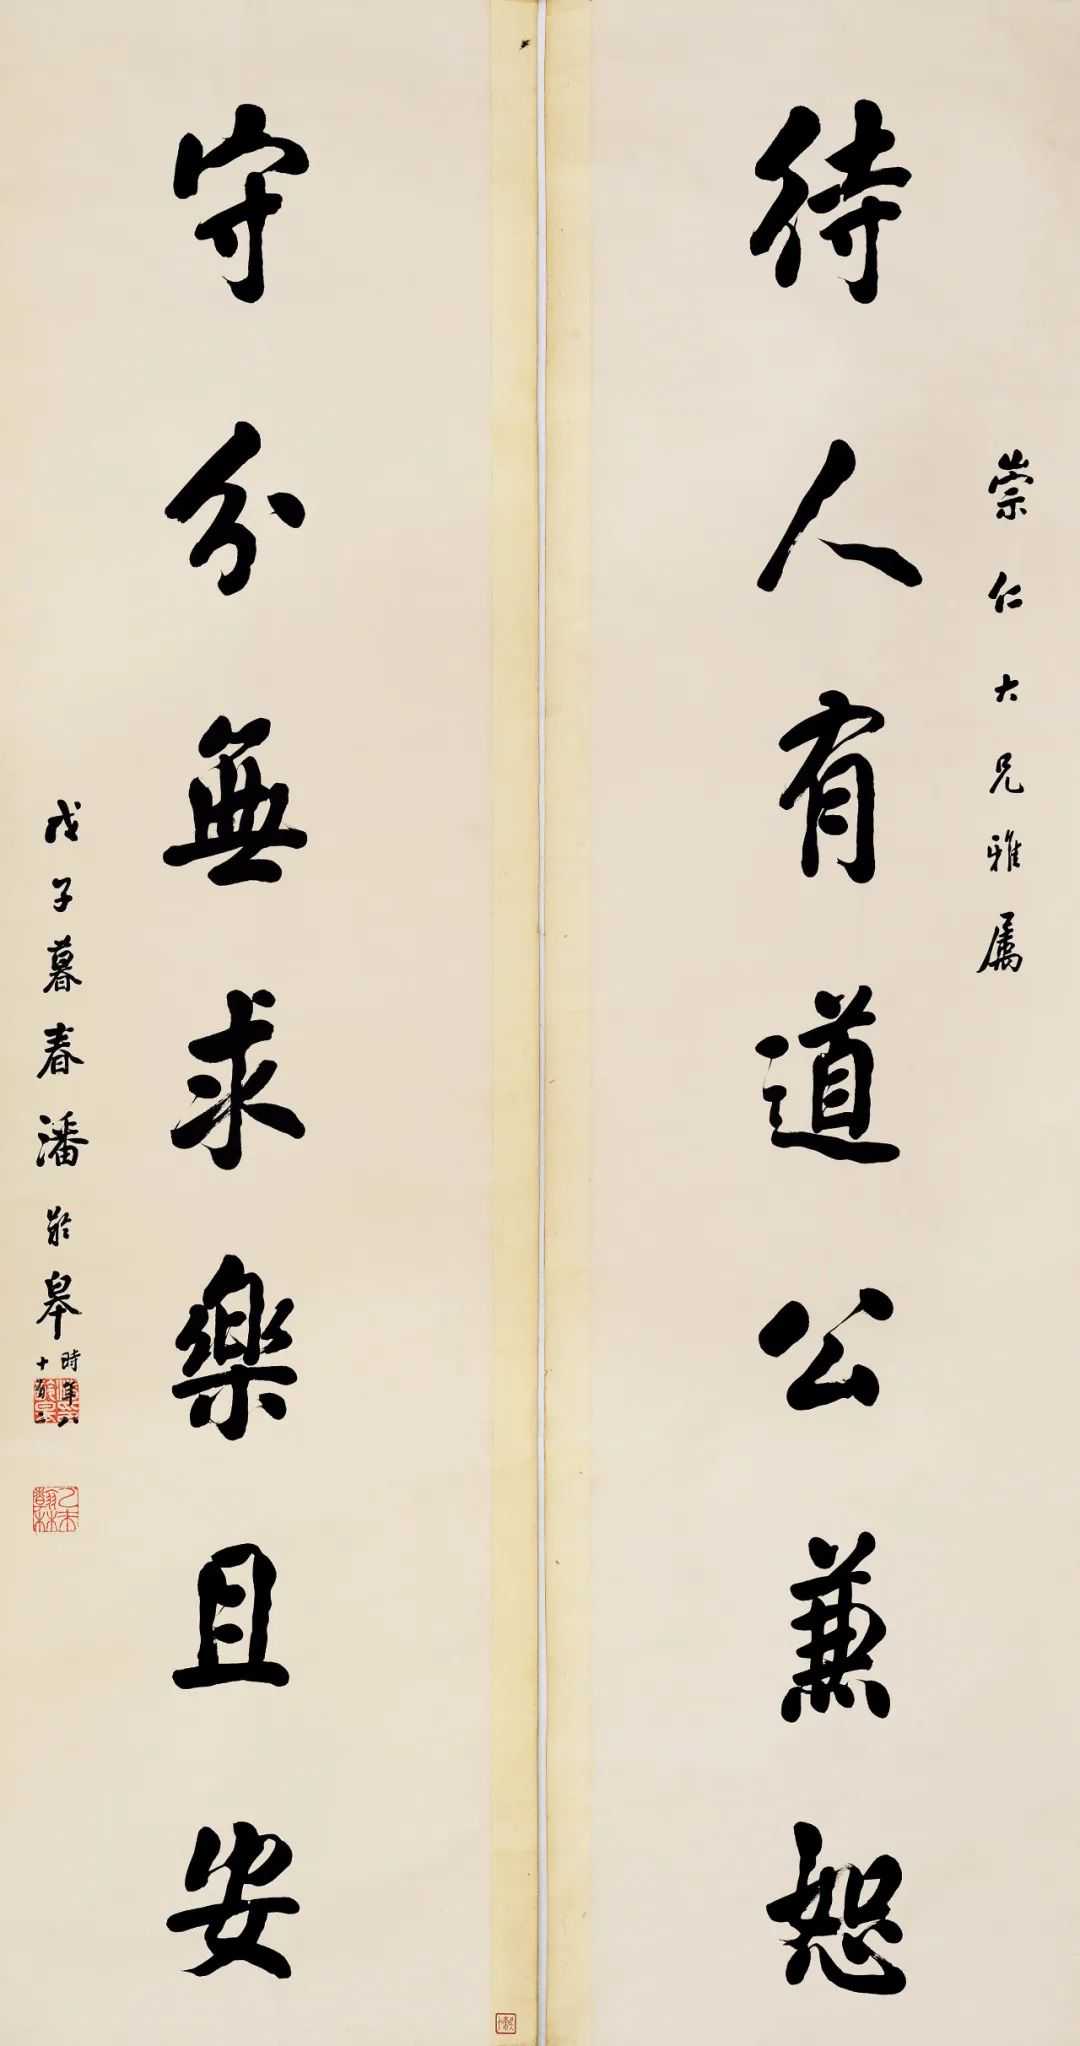 崇仁大兄雅属
待人有道公兼恕
守分無求樂且安
戊子暮春潘齡皋
時年八
十有二
乙未翰林